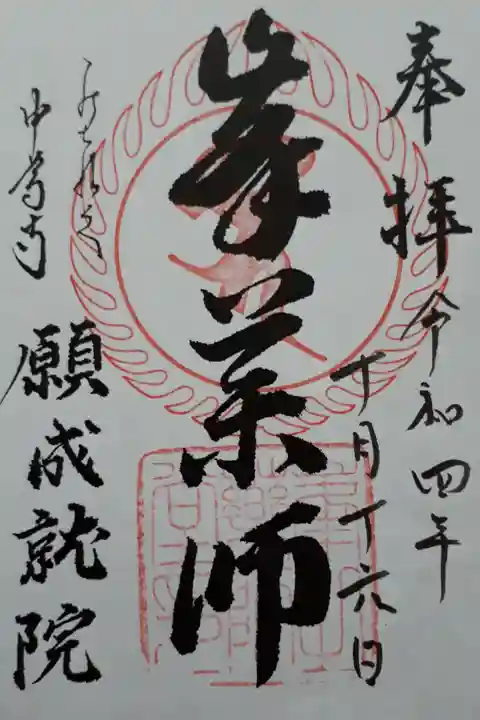 奉拝 令和四年
十月十六日
峯薬師
中尊寺
願成就院